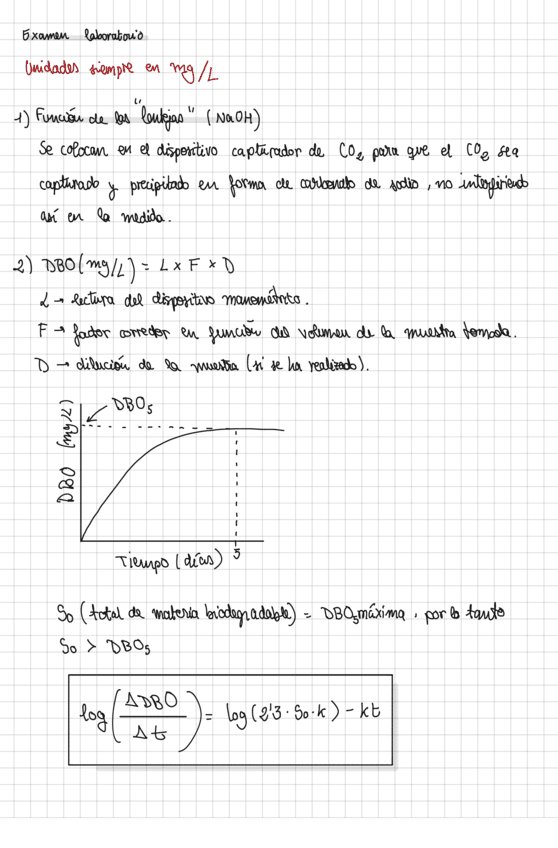 Examen laboratorio
Unidades siempre en mg/L
1) Función de las "lentejas" (NaOH)
Se colocan en el dispositivo capturador de CO2 para que el CO2 sea
capturado y precipitado en forma de carbonato de sodio, no interfiriendo
así en la medida.
2) DBO (mg/L) = L x F x D
L → lectura del dispositivo manométrico.
F → factor corrector en función del volumen de la muestra tomada.
D → dilución de la muestra (si se ha realizado).
DBO5
DBO (mg/L)
Tiempo (días)
5
So (total de materia biodegradable) = DBO5 máxima, por lo tanto
So > DBO5
log (ΔDBO/Δt) = log (2'3 · So · k) - kt